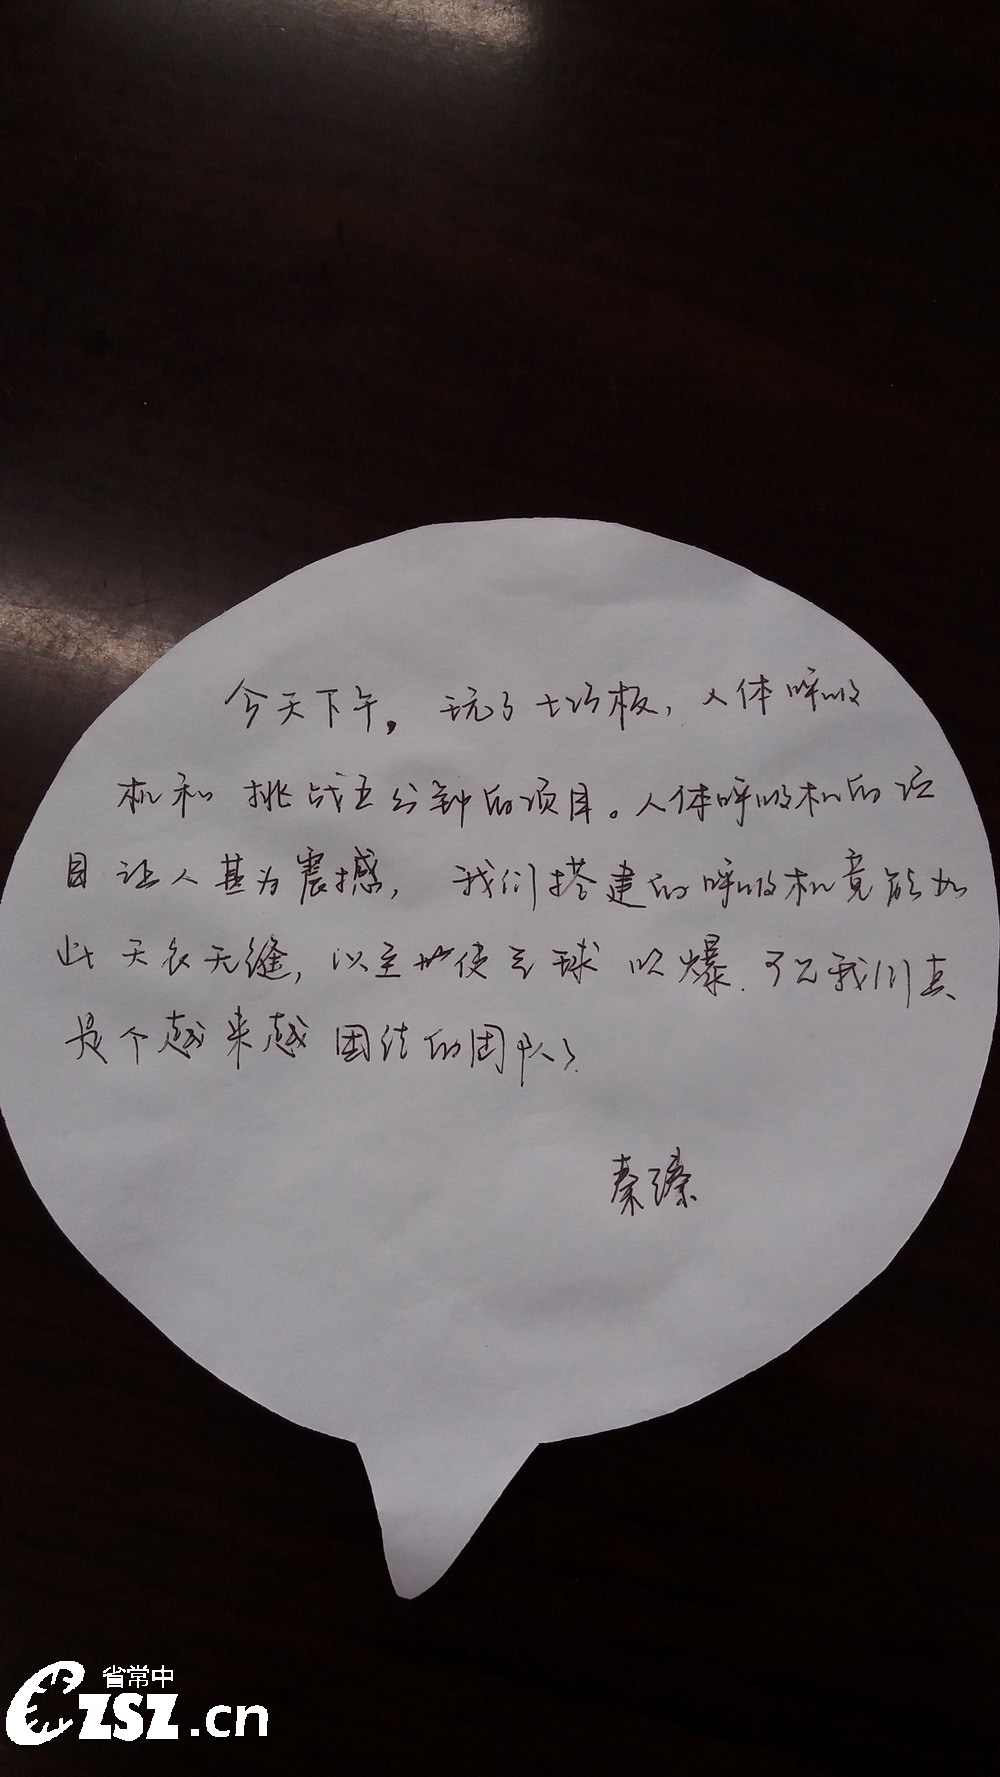 今天下午，玩了七巧板，人体呼吸
机和挑战五分钟的项目。人体呼吸机的项
目让人甚为震撼，我们搭建的呼吸机竟能如
此天衣无缝，以至于使气球吹爆.可见我们真
是个越来越团结的团队了.
秦臻
省常中
CZSZ.cn